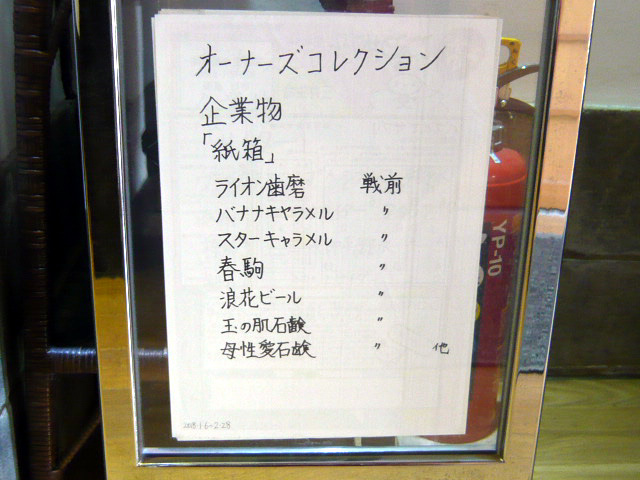 オーナーズコレクション
企業物
「紙箱」
ライオン歯磨 戦前
バナナキャラメル 〃
スターキャラメル 〃
春駒 〃
浪花ビール 〃
玉の肌石鹸 〃
母性愛石鹸 〃 他
YP-10